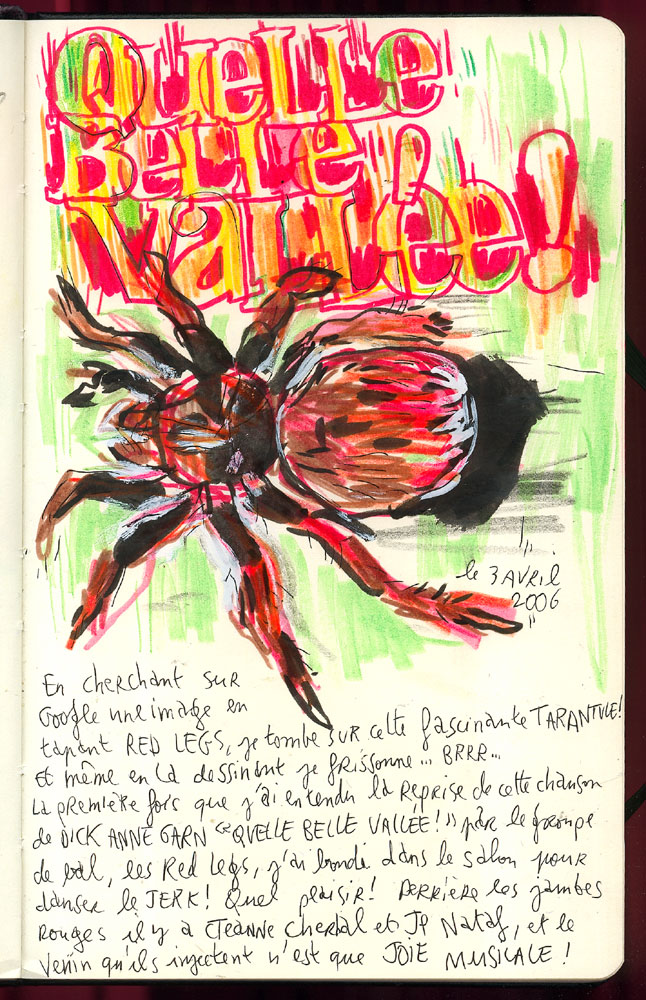 QUELLE
BELLE
VALLÉE!
le 3 AVRIL
2006
En cherchant SUR
Google une image en
tapant RED LEGS, je tombe SUR cette fascinante TARANTULE!
Et même en la dessinant je frissonne... BRRR...
La première fois que j'ai entendu la reprise de cette chanson
de DICK ANNEGARN "QUELLE BELLE VALLÉE!" par le groupe
de bal, les Red Legs, j'ai bondi dans le salon pour
danser le JERK! Quel plaisir! Derrière les jambes
rouges il y a JEANNE Cherhal et JP Nataf, et le
venin qu'ils injectent n'est que JOIE MUSICALE!